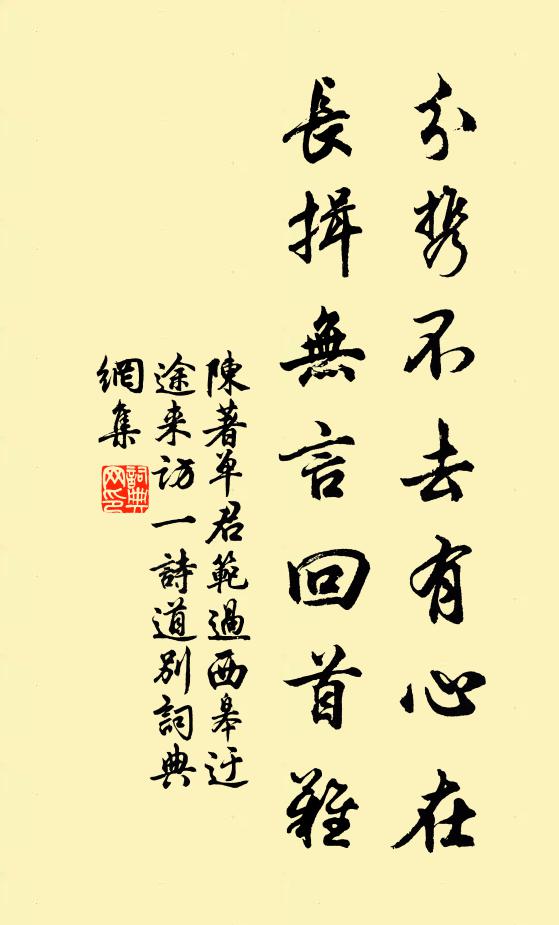 分携不去有心在
長揖無言回首難
陳著单君範過西皋迂
途来訪一詩道別詞典
網集
詞典網印